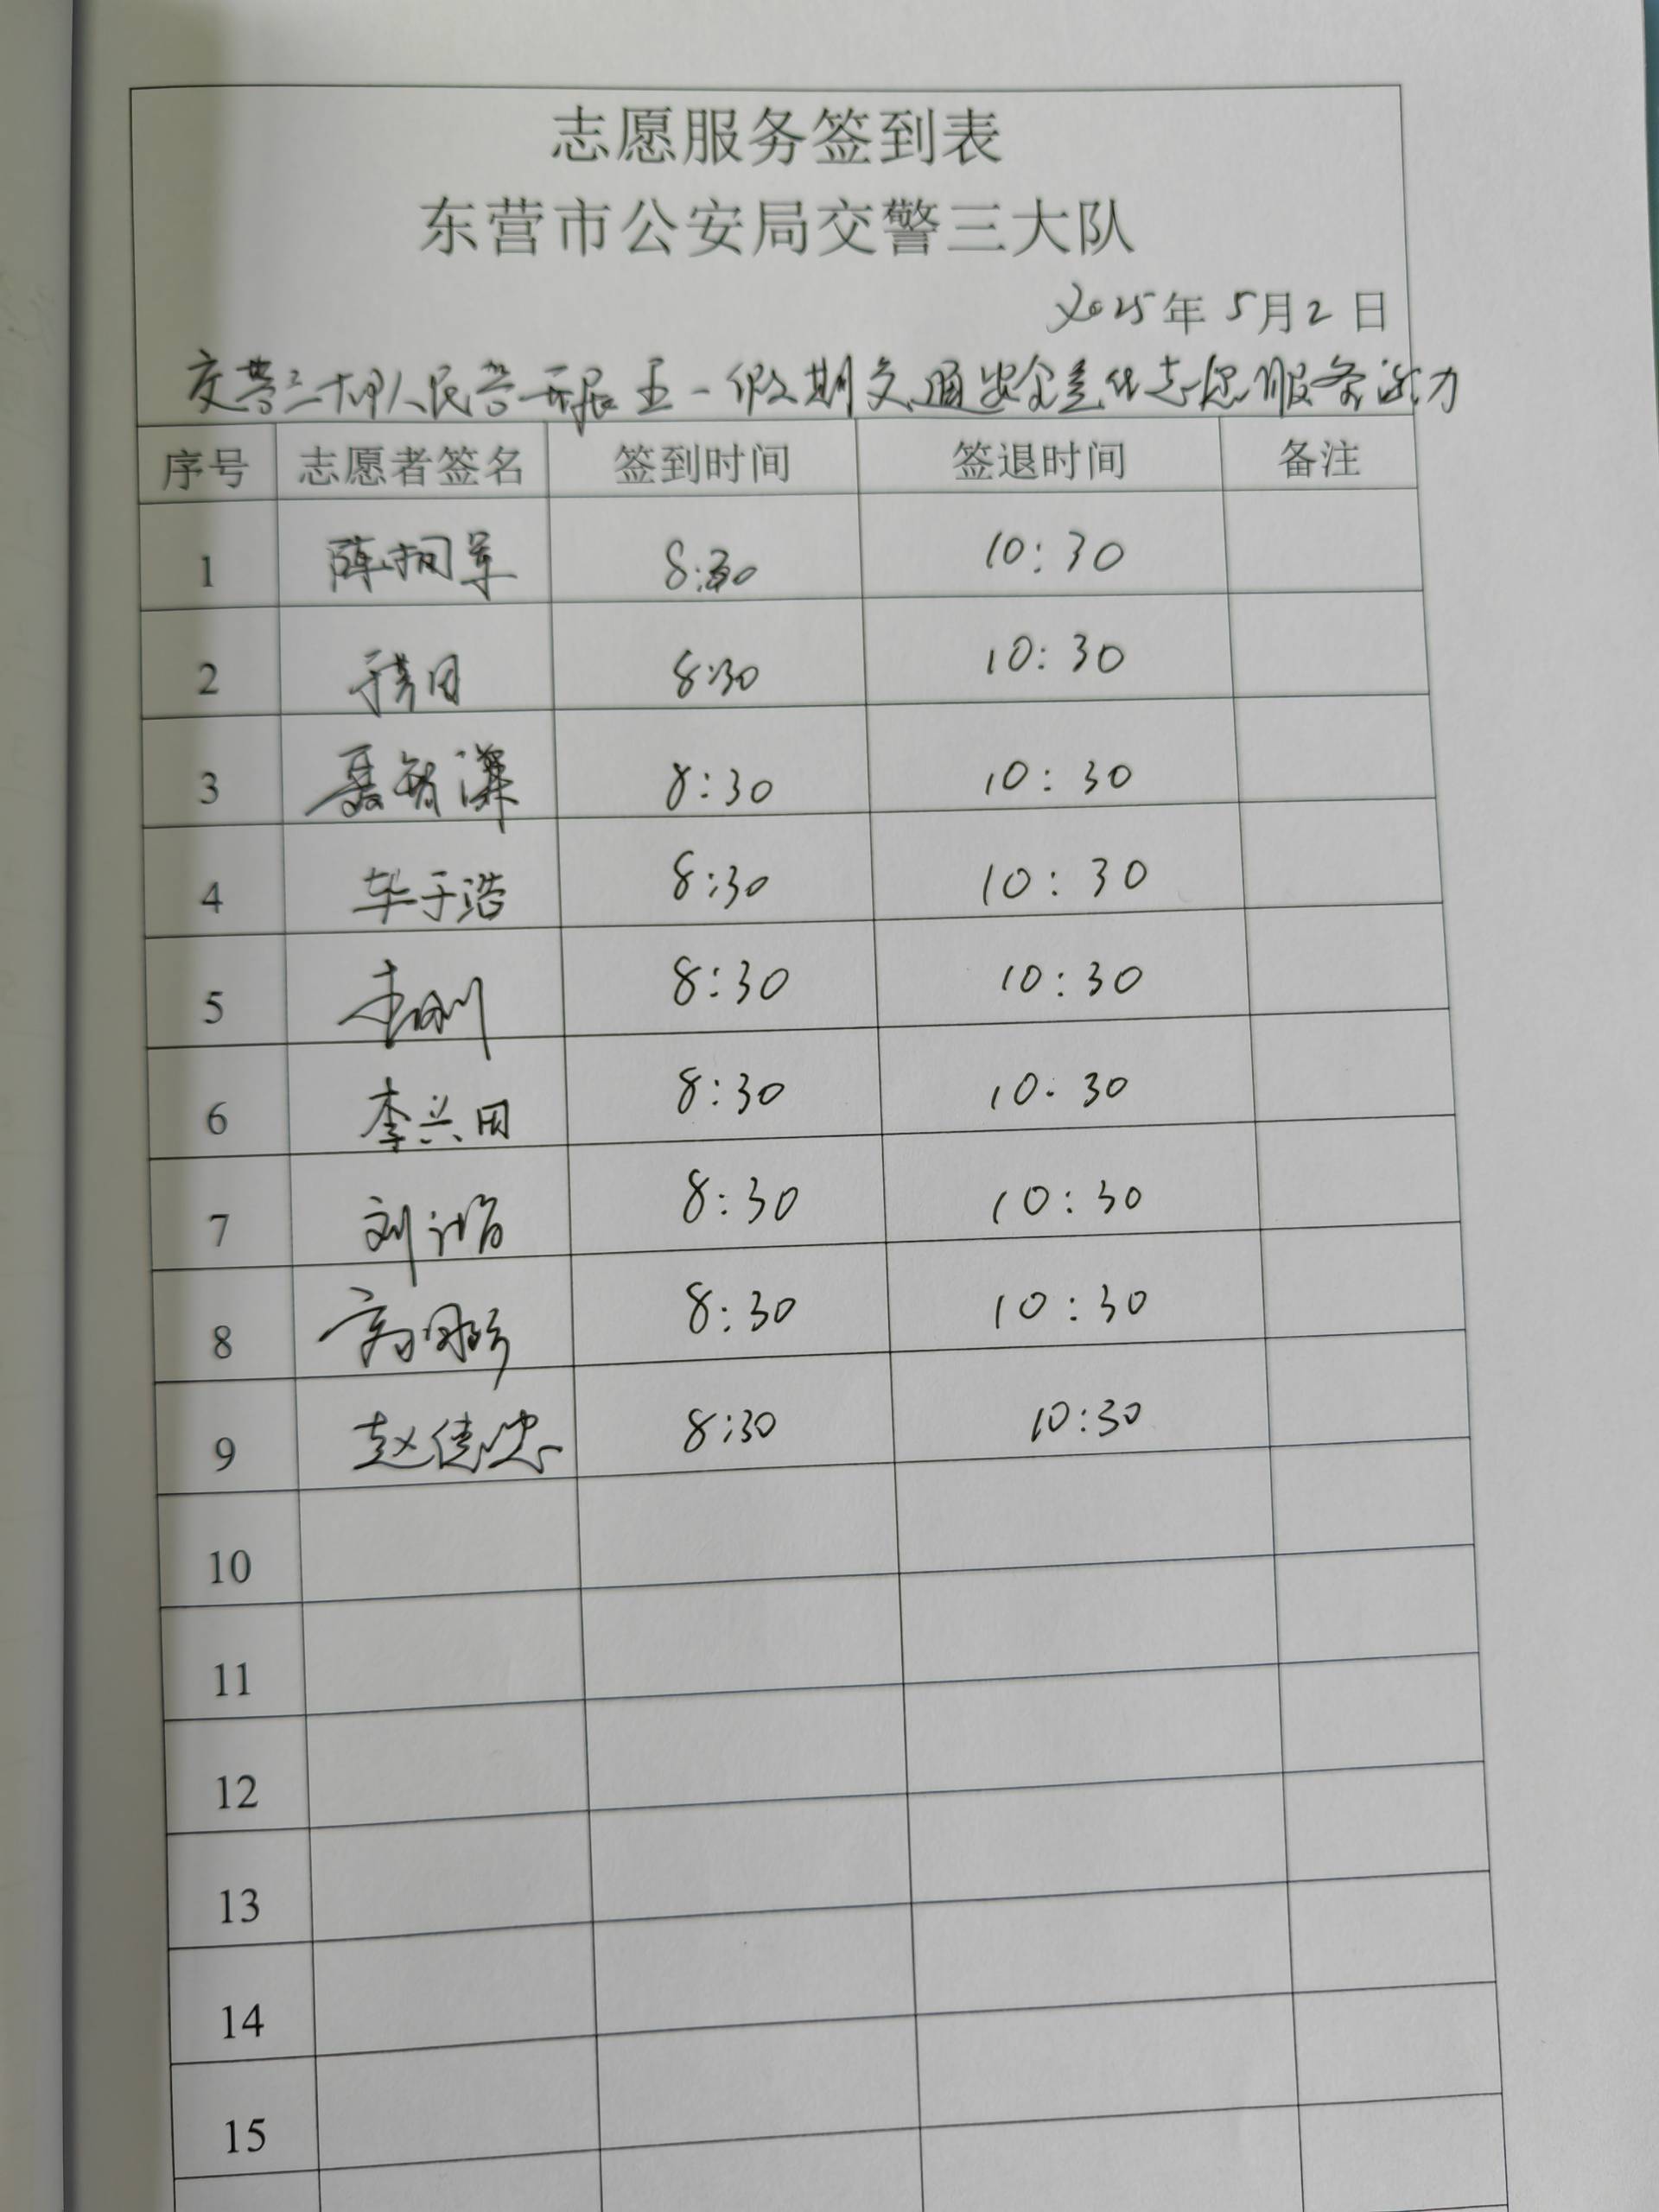 志愿服务签到表
东营市公安局交警三大队
2025年5月2日
交警三大队人民警开展五一假期交通安全宣传志愿服务活动
序号 志愿者签名 签到时间 签退时间 备注
1 8:30 10:30
2 8:30 10:30
3 聂 8:30 10:30
4 毕于浩 8:30 10:30
5 李刚 8:30 10:30
6 李兴田 8:30 10:30
7 刘 8:30 10:30
8 高 8:30 10:30
9 赵佳忠 8:30 10:30
10
11
12
13
14
15